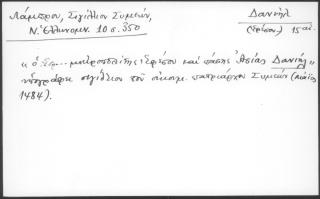 Λάμπρου, Σιγίλλιον Συμεών, Δανιήλ
Ν. Ἑλληνομν. 10 σ. 350 (Ἐφέσου) 15 αἰ.
« ὁ Ἐφ... μητροπολίτης Ἐφέσου καί πάσης Ἀσίας Δανιήλ »
ὑπογράφει σιγίλλιον τοῦ οἰκουμ. πατριάρχου Συμεών (
1484).